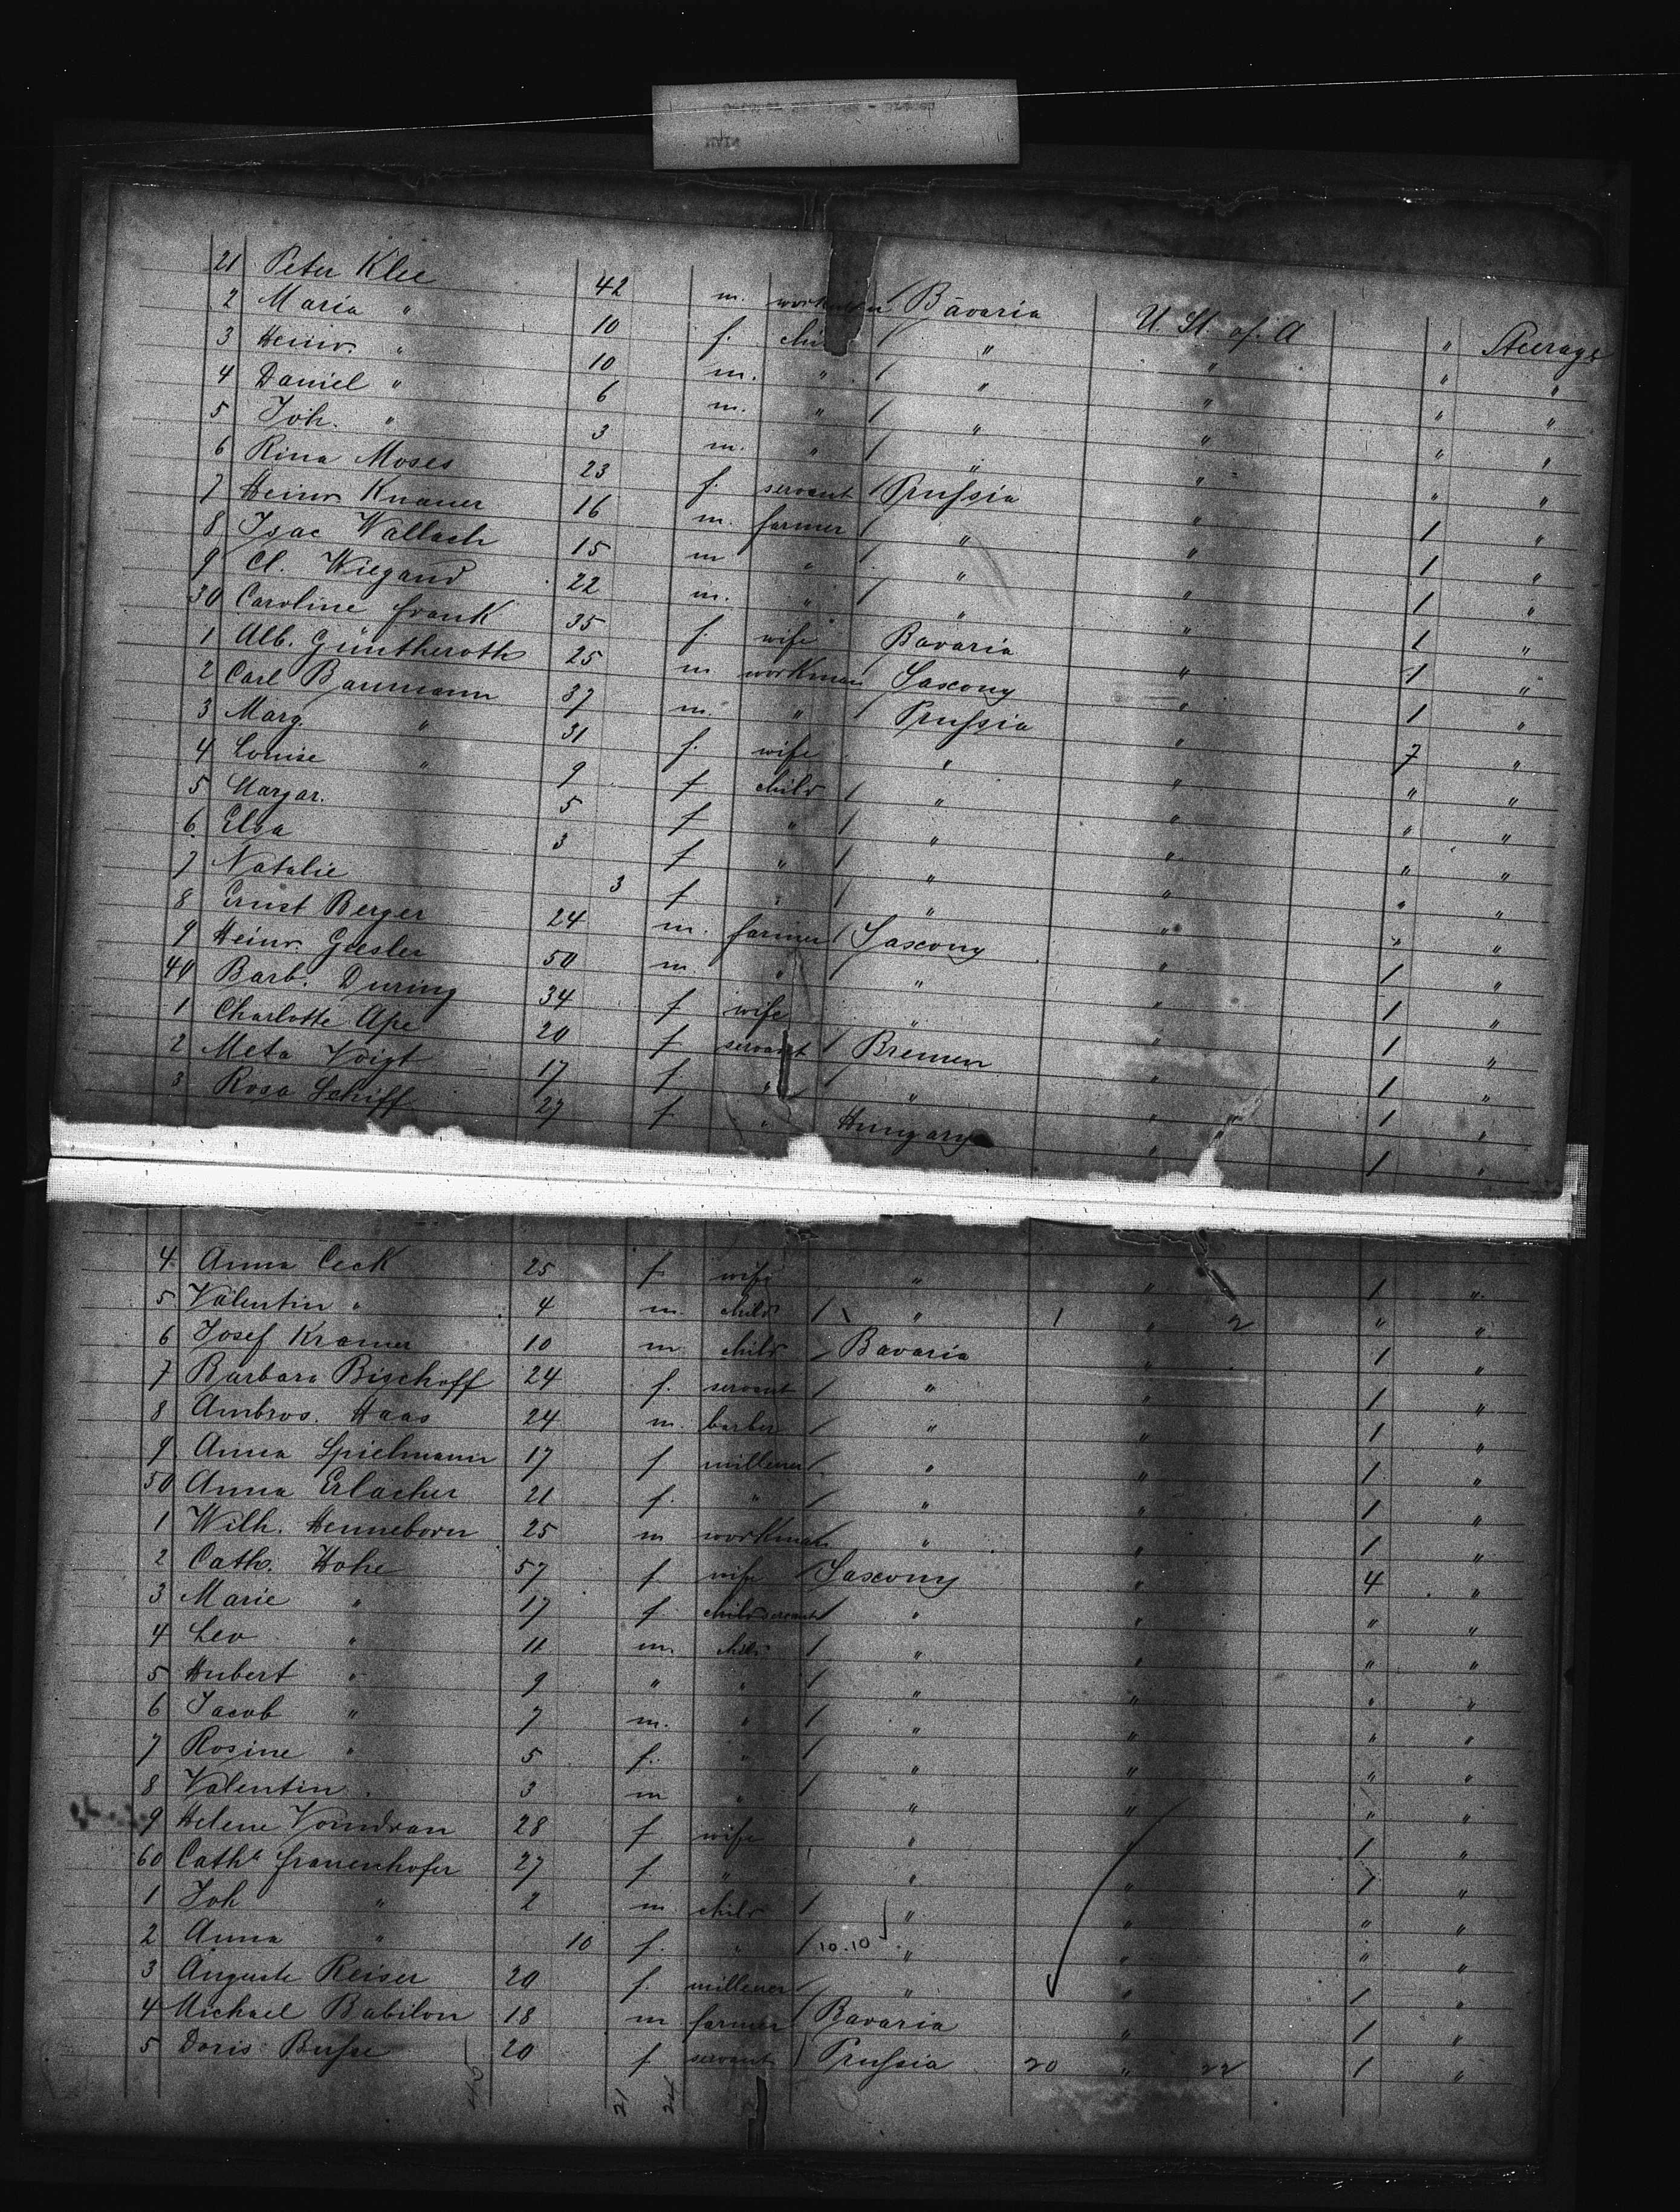 21 Peter Klee 42 m. workman Bavaria U. St. of. A " Steerage
2 Maria " 10 f. child " " " "
3 Heinr. " 10 m. " " " " "
4 Daniel " 6 m. " " " " "
5 Joh. " 3 m. " " " " "
6 Rina Moses 23 f. servant Prussia " 1 "
7 Heinr. Knauer 16 m. farmer " " 1 "
8 Isac Wallach 15 m " " " 1 "
9 Cl. Wiegand 22 m. " " " 1 "
30 Caroline Frank 35 f. wife Bavaria " 1 "
1 Alb. Güntheroth 25 m workman Saxony " 1 "
2 Carl Baumann 37 m. " Prussia " 7 "
3 Marg. " 31 f. wife " " " "
4 Louise " 9 f child " " " "
5 Margar. 5 f " " " " "
6 Elsa 3 f " " " " "
7 Natalie 3 f " " " " "
8 Ernst Berger 24 m. farmer Saxony " 1 "
9 Heinr. Giesler 50 m. " " " 1 "
40 Barb. During 34 f wife " " 1 "
1 Charlotte Ape 20 f servant Bremen " 1 "
2 Meta Voigt 17 f " " " 1 "
3 Rosa Schiff 27 f " Hungary " 1 "
4 Anna Ceck 25 f wife " " 1 "
5 Valentin " 4 m. child " 1 " 2 " "
6 Josef Kramer 10 m child Bavaria " 1 "
7 Barbara Bischoff 24 f. servant " " 1 "
8 Ambros. Haas 24 m. barber " " 1 "
9 Anna Spielmann 17 f millener " " 1 "
50 Anna Erlacher 21 f. " " " 1 "
1 Wilh. Henneborn 25 m workman " " 1 "
2 Cath. Hohe 57 f wife Saxony " 4 "
3 Marie " 17 f child servant " " " "
4 Leo " 11 m. child " " " "
5 Hubert " 9 " " " " " "
6 Jacob " 7 m. " " " " "
7 Rosine " 5 f. " " " " "
8 Valentin " 3 m " " " " "
9 Helene Vomdran 28 f wife " " 1 "
60 Cath. Frauenhofer 27 f " " " 7 "
1 Joh " 2 m child " " " "
2 Anna " 10 f. " 10.10 " " " "
3 Auguste Reiser 20 f. millener " " 1 "
4 Michael Babilon 18 m farmer Bavaria " 1 "
5 Doris Busse 20 f servant Prussia 20 " 22 1 "
21 24